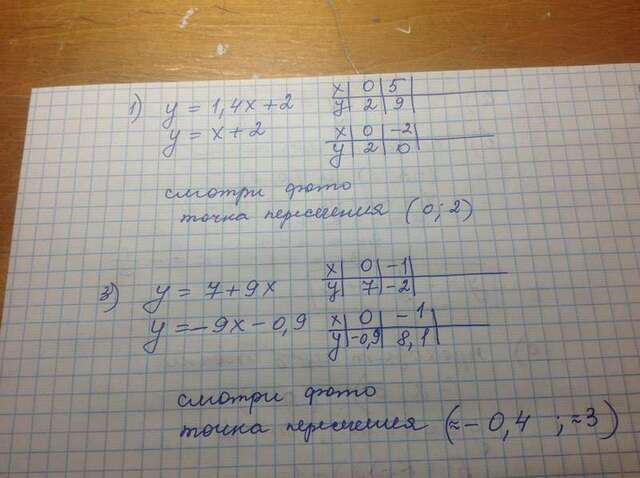 1) y = 1,4x+2 x 0 5
y 2 9
y = x+2 x 0 -2
y 2 0
смотри фото
точка пересечения (0; 2)
3) y = 7+9x x 0 -1
y 7 -2
y = -9x-0,9 x 0 -1
y -0,9 8,1
смотри фото
точка пересечения (≈-0,4 ; ≈3)